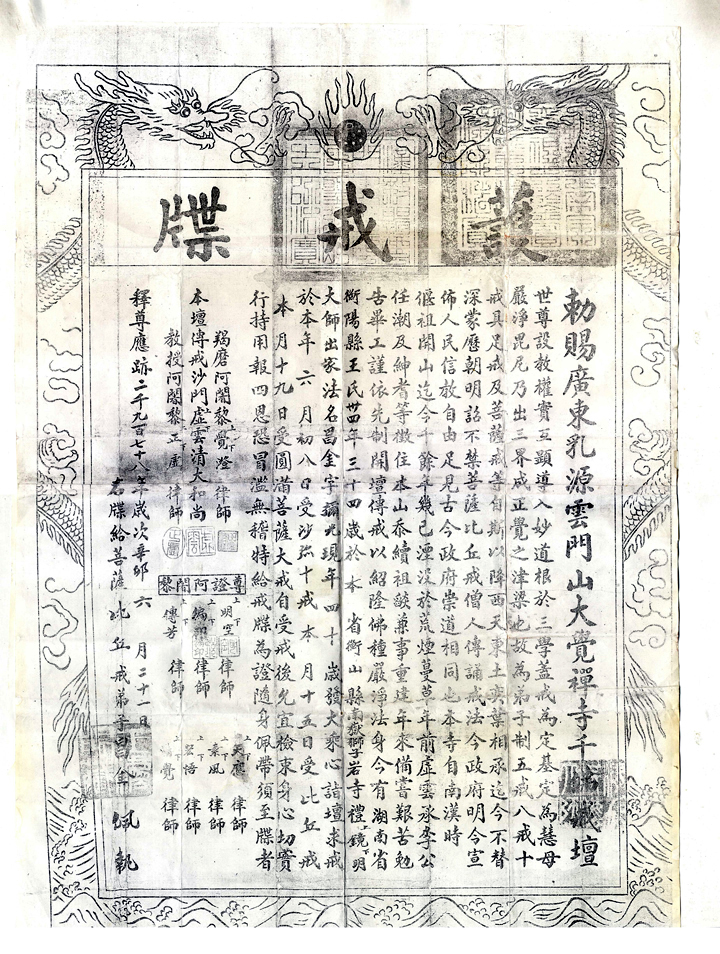 護戒牒
勅賜廣東乳源雲門山大覺禪寺千佛戒壇
世尊設教權實互顯導入妙道根於三學蓋戒為定基定為慧母
嚴淨毘尼乃出三界成正覺之津梁也故為弟子制五戒八戒十
戒具足戒及菩薩戒善自斯以降西天東土奕葉相承迄今不替
深蒙歷朝明詔不禁菩薩比丘戒僧人傳誦戒法今政府明令宣
佈人民信教自由足見古今政府崇道相同也本寺自南漢時
偃祖開山迄今千餘年幾已湮沒於荒煙蔓草年前虛雲承李公
任潮及紳耆等徵住本山忝續祖燄兼事重建年來備嘗艱苦勉
告畢工謹依先制開壇傳戒以紹隆佛種嚴淨法身今有湖南省
衡陽縣王氏卅四年三十四歲於本省衡山縣南嶽獅子岩寺禮上鏡下明
大師出家法名昌金字 現年四十 歲發大乘心詣壇求戒
於本年六月初八日受沙彌十戒本月十五日受比丘戒
本月十九日受圓滿菩薩大戒自受戒後允宜檢束身心切實
行持用報四恩恐冒濫無稽特給戒牒為證隨身佩帶須至牒者
羯磨阿闍黎上覺下澄律師
本壇傳戒沙門虛雲清大和尚
教授阿闍黎上正下虛律師
尊證阿闍黎
上明下空律師
律師
上傳下芳律師
律師
上素下風律師
上下悟律師
上下覺律師
釋尊應跡二千九百七十八年歲次辛卯六月二十一日
右牒給菩薩比丘戒弟子昌金佩執